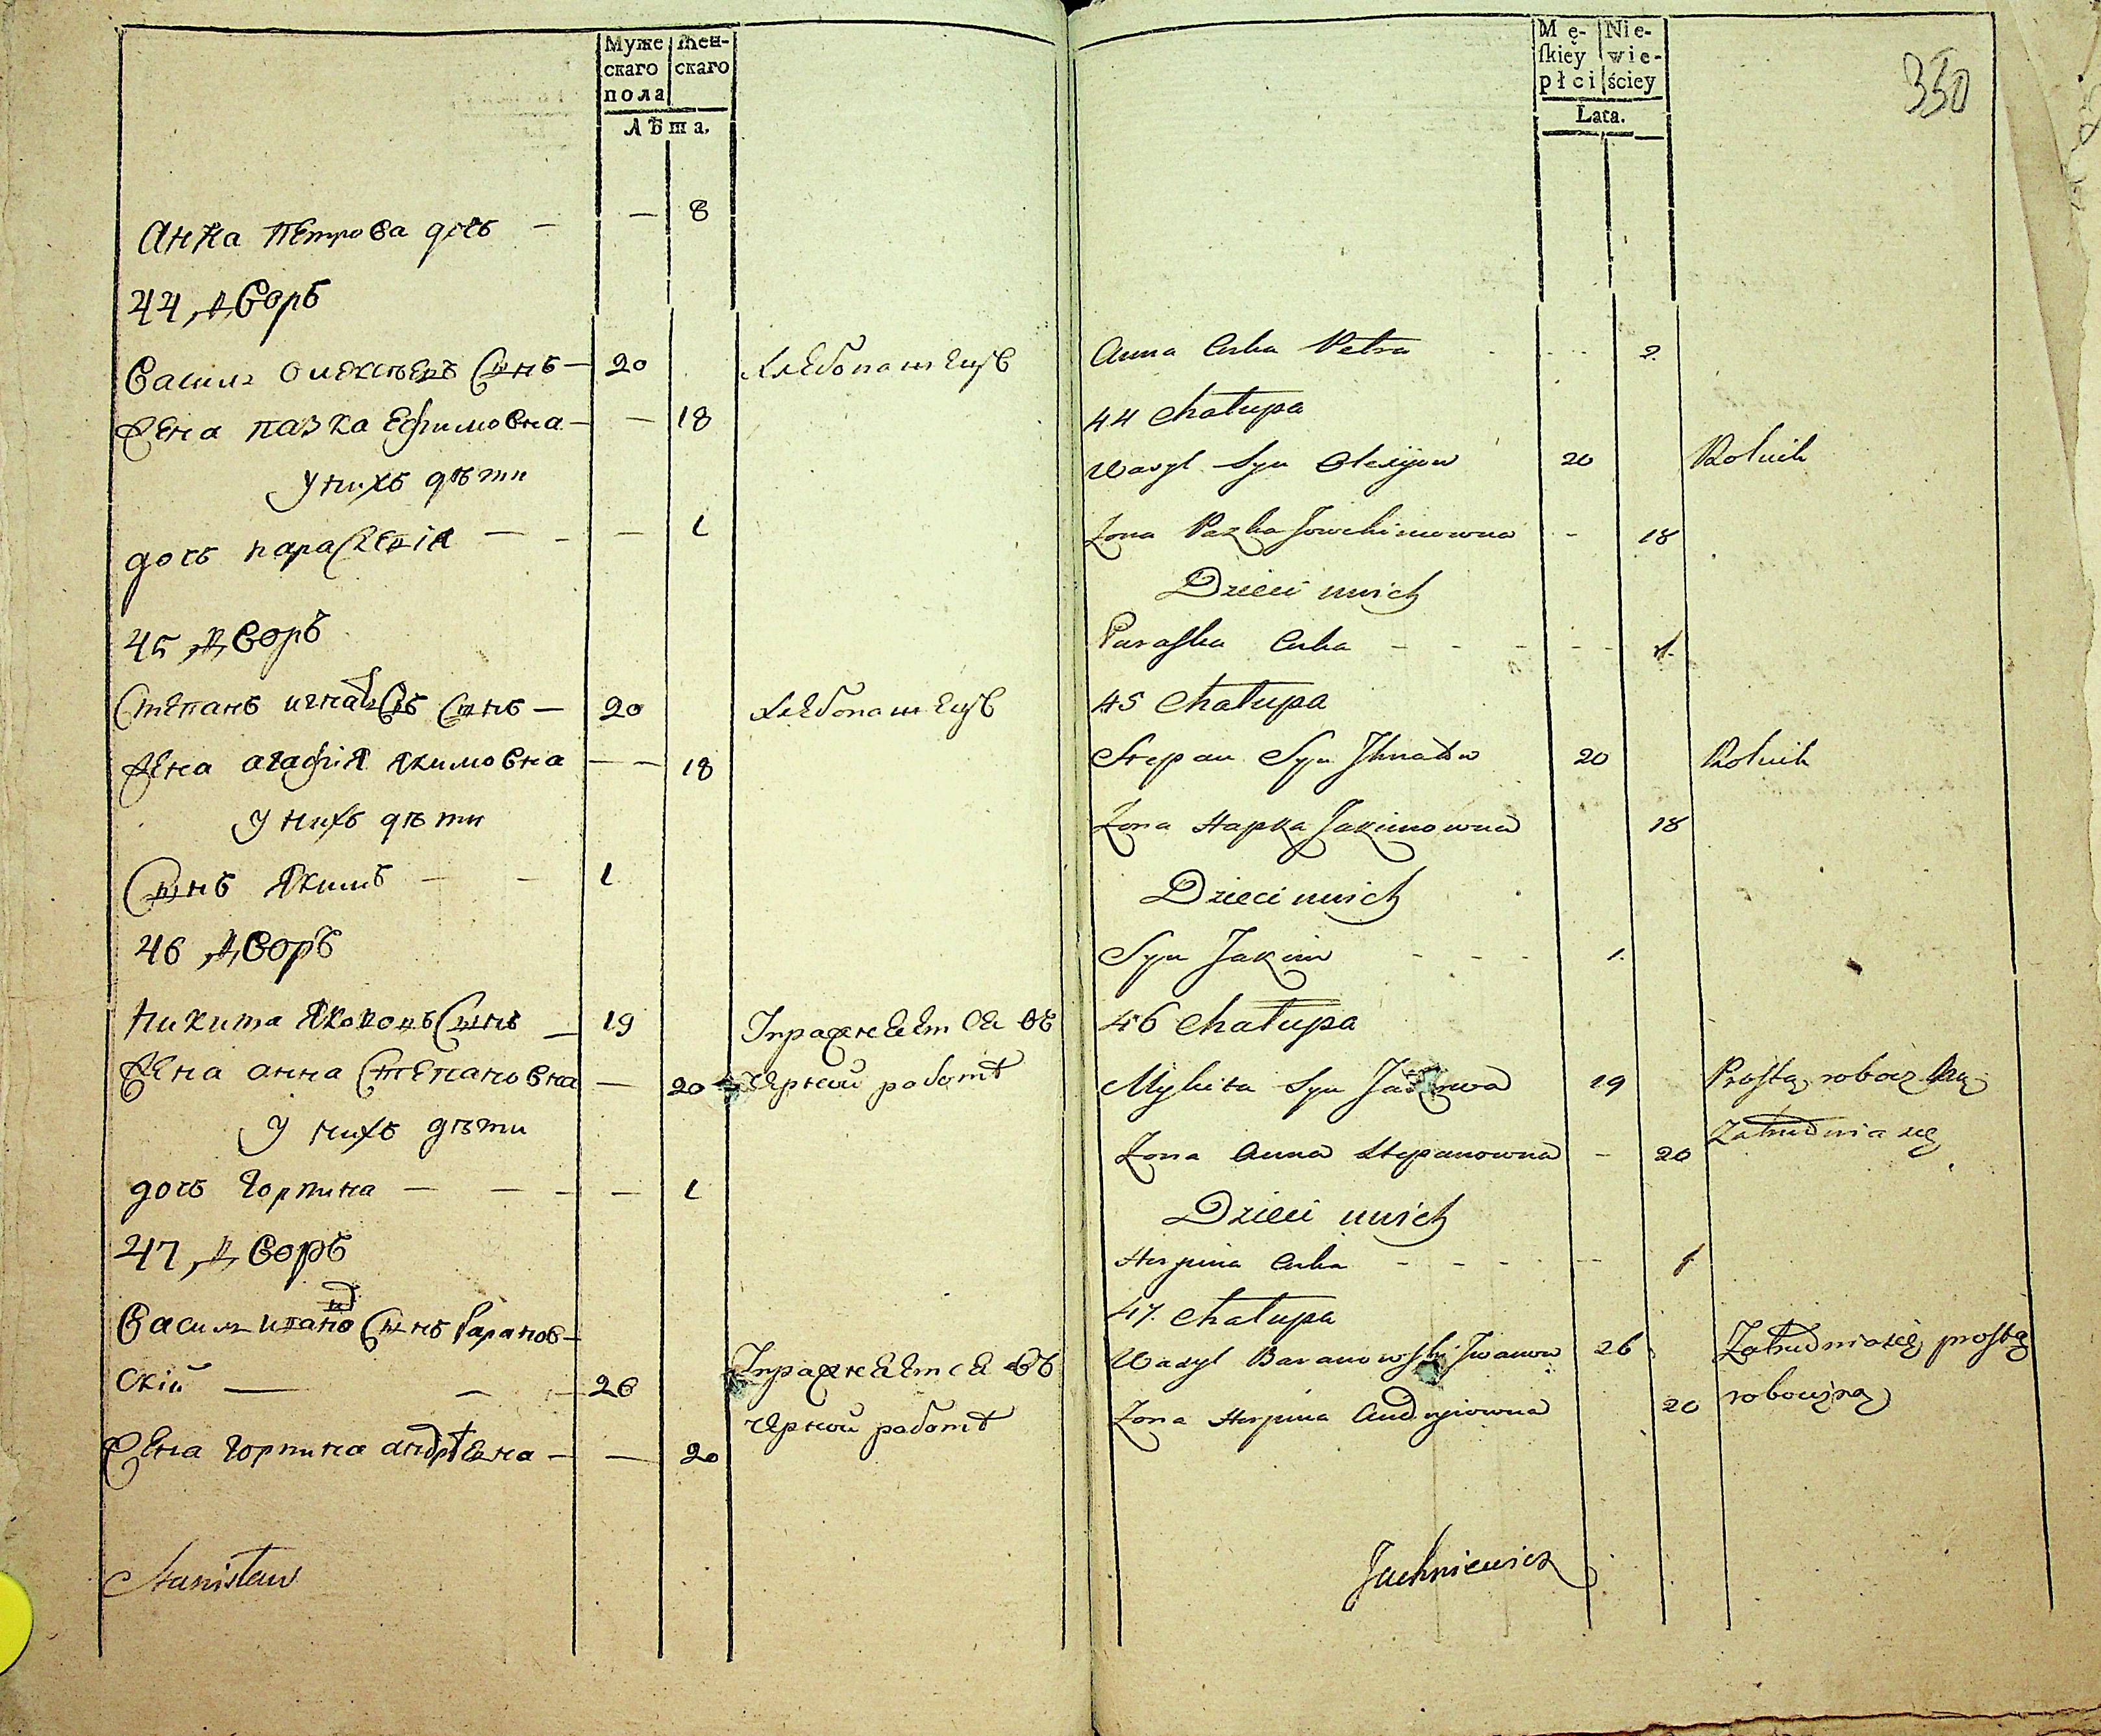 Муже скаго пола
Жен- скаго
Лѣта.
Анна Петрова дочь — — 8
44 Дворъ
Василь Олексѣевъ Сынъ — 20 Хлебопашецъ
Жена Пазка Ефимовна — — 18
У нихъ дѣти
дочь параскевія — — — 1
45 Дворъ
Степанъ игнатьевъ Сынъ — 20 Хлебопашецъ
Жена агафія Якимовна — — 18
У нихъ дѣти
Сынъ Якимъ — — 1
46 Дворъ
Никита Якововъ Сынъ — 19 Упражняется въ
Жена анна Степановна — 20 чѣрной работѣ
У нихъ дѣти
дочь Горпина — — — — 1
47 Дворъ
Василь ивановъ Сынъ Баранов-
скій — — — 26 Упражняется въ
чѣрной работѣ
Жена Горпина андрѣевна — — 20
Stanisław
Mę- ſkiey płci
Nie- wie- ściey
Lata.
350
Anna Curka Petra - - - - 2.
44 Chałupa
Wasyl Syn Olexijow 20 Rolnik
Zona Pazka Jowchimowna - 18
Dzieci unich
Paraſka Curka - - - - - 1.
45 Chałupa
Stepan Syn Jhnatow 20 Rolnik
Zona Hapka Jakimowna 18
Dzieci unich
Syn Jakim - - - 1.
46 Chałupa
Mykita Syn Jakowa 19 Proſtą roboczką
Zona Anna Stepanowna - 20 Zatrudnia się
Dzieci unich
Horpina Curka - - - - -- 1
47. Chałupa
Wasyl Baranowſki Jwanow 26 Zatrudnia się proſtą
Zona Horpina Andryiowna 20 roboczną
Juchniewicz